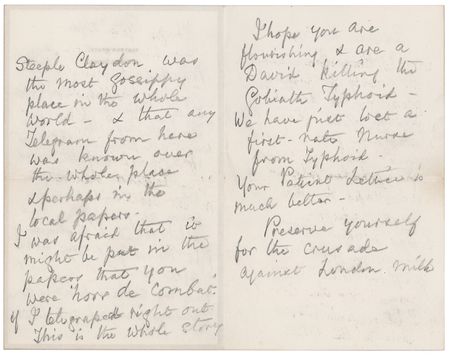 Steeple Claydon was
the most gossippy
place in the whole
world - & that any
Telegram from here
was known over
the whole place
& perhaps in the
local papers.
I was afraid that it
might be put in the
papers that you
were 'hors de combat',
if I telegraped right out.
This is the whole story
I hope you are
flourishing & are a
David killing the
Goliath Typhoid -
We have just lost a
first-rate Nurse
from Typhoid.
Your Patient is
much better -
Preserve yourself
for the crusade
against London milk